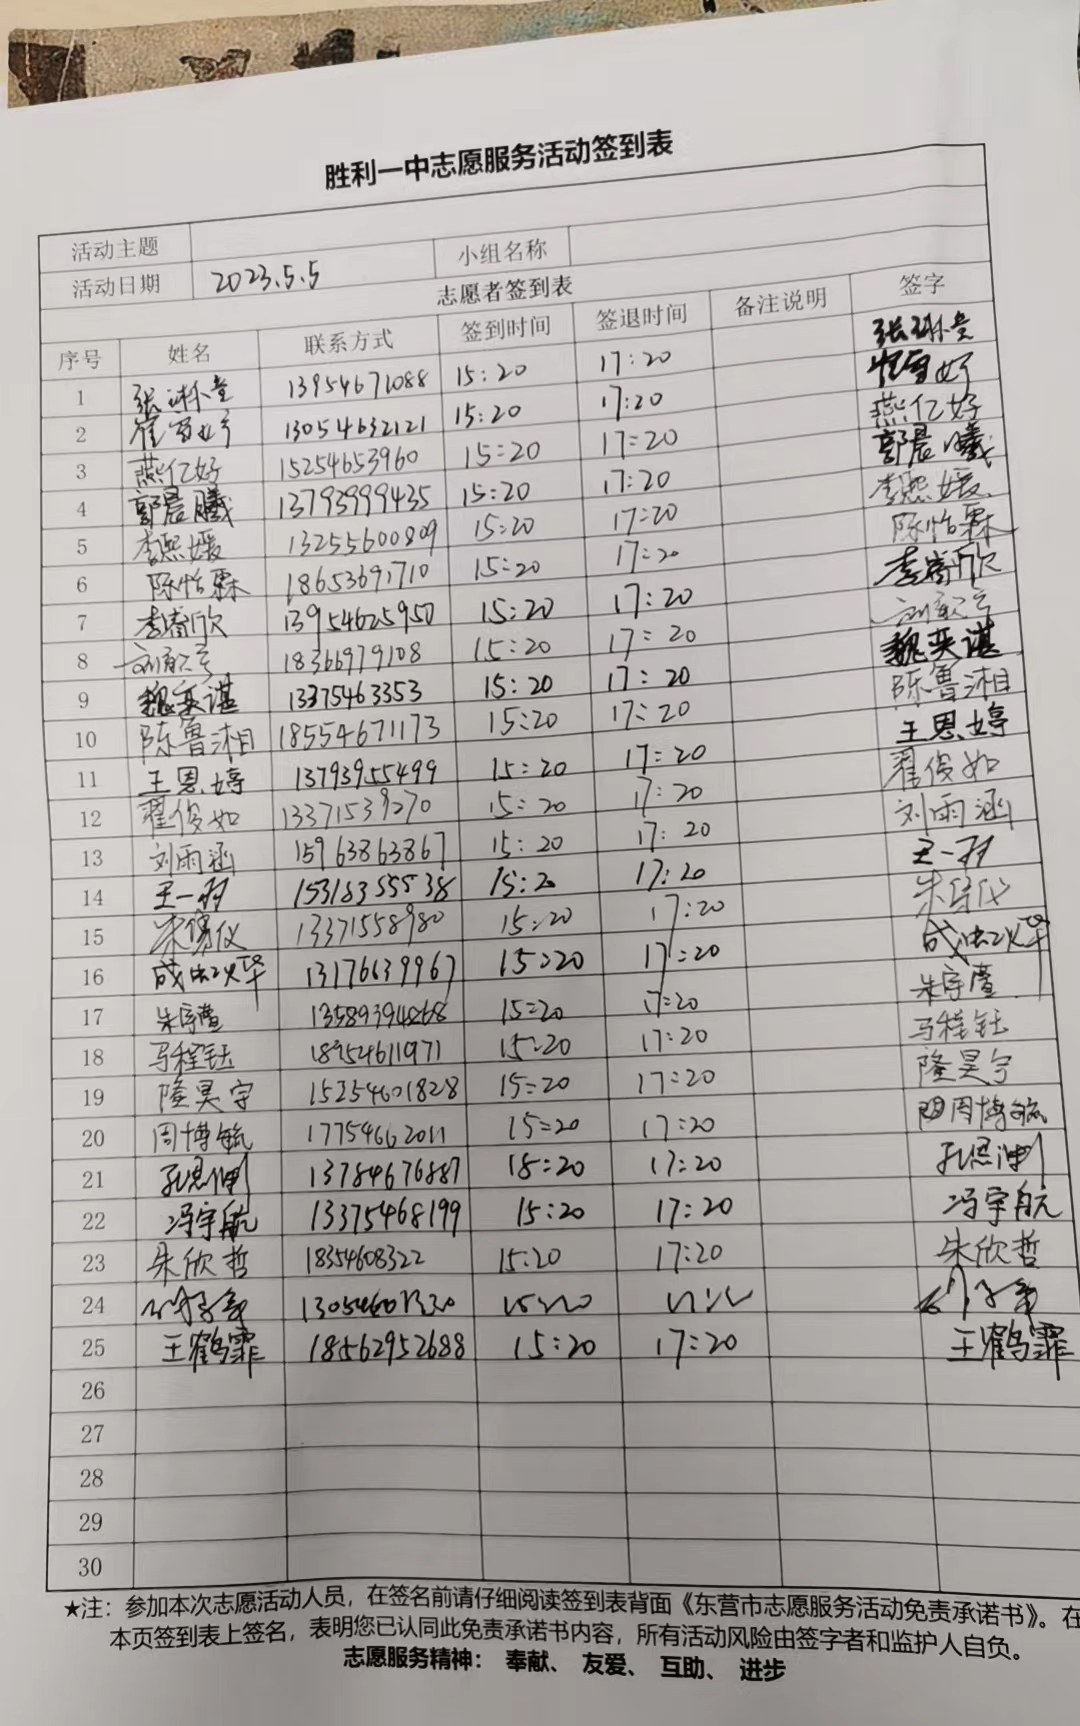 胜利一中志愿服务活动签到表
活动主题 小组名称
活动日期 2023.5.5
志愿者签到表
序号 姓名 联系方式 签到时间 签退时间 备注说明 签字
1 13954671088 15:20 17:20
2 13054632121 15:20 17:20
3 燕亿好 15254653960 15:20 17:20 燕亿好
4 郭晨曦 13793999435 15:20 17:20 郭晨曦
5 李熙媛 13255600809 15:20 17:20 李熙媛
6 陈怡霖 18653691710 15:20 17:20 陈怡霖
7 13954625950 15:20 17:20
8 18366979108 15:20 17:20
9 魏英谌 13375463353 15:20 17:20 魏英谌
10 陈鲁湘 18554671173 15:20 17:20 陈鲁湘
11 王恩婷 13793955499 15:20 17:20 王恩婷
12 翟俊如 13371539270 15:20 17:20 翟俊如
13 刘雨涵 15963863867 15:20 17:20 刘雨涵
14 15:20 17:20
15 13371558980 15:20 17:20
16 13176639967 15:20 17:20
17 15:20 17:20
18 马程钰 18954611971 15:20 17:20 马程钰
19 隆昊宇 15254601828 15:20 17:20 隆昊宇
20 周博毓 17754662011 15:20 17:20 周博毓
21 13784676887 15:20 17:20
22 冯宇航 13375468199 15:20 17:20 冯宇航
23 朱欣哲 18354608322 15:20 17:20 朱欣哲
24
25 王鹤霏 18562952688 15:20 17:20 王鹤霏
26
27
28
29
30
★注：参加本次志愿活动人员，在签名前请仔细阅读签到表背面《东营市志愿服务活动免责承诺书》。在
本页签到表上签名，表明您已认同此免责承诺书内容，所有活动风险由签字者和监护人自负。
志愿服务精神： 奉献、 友爱、 互助、 进步